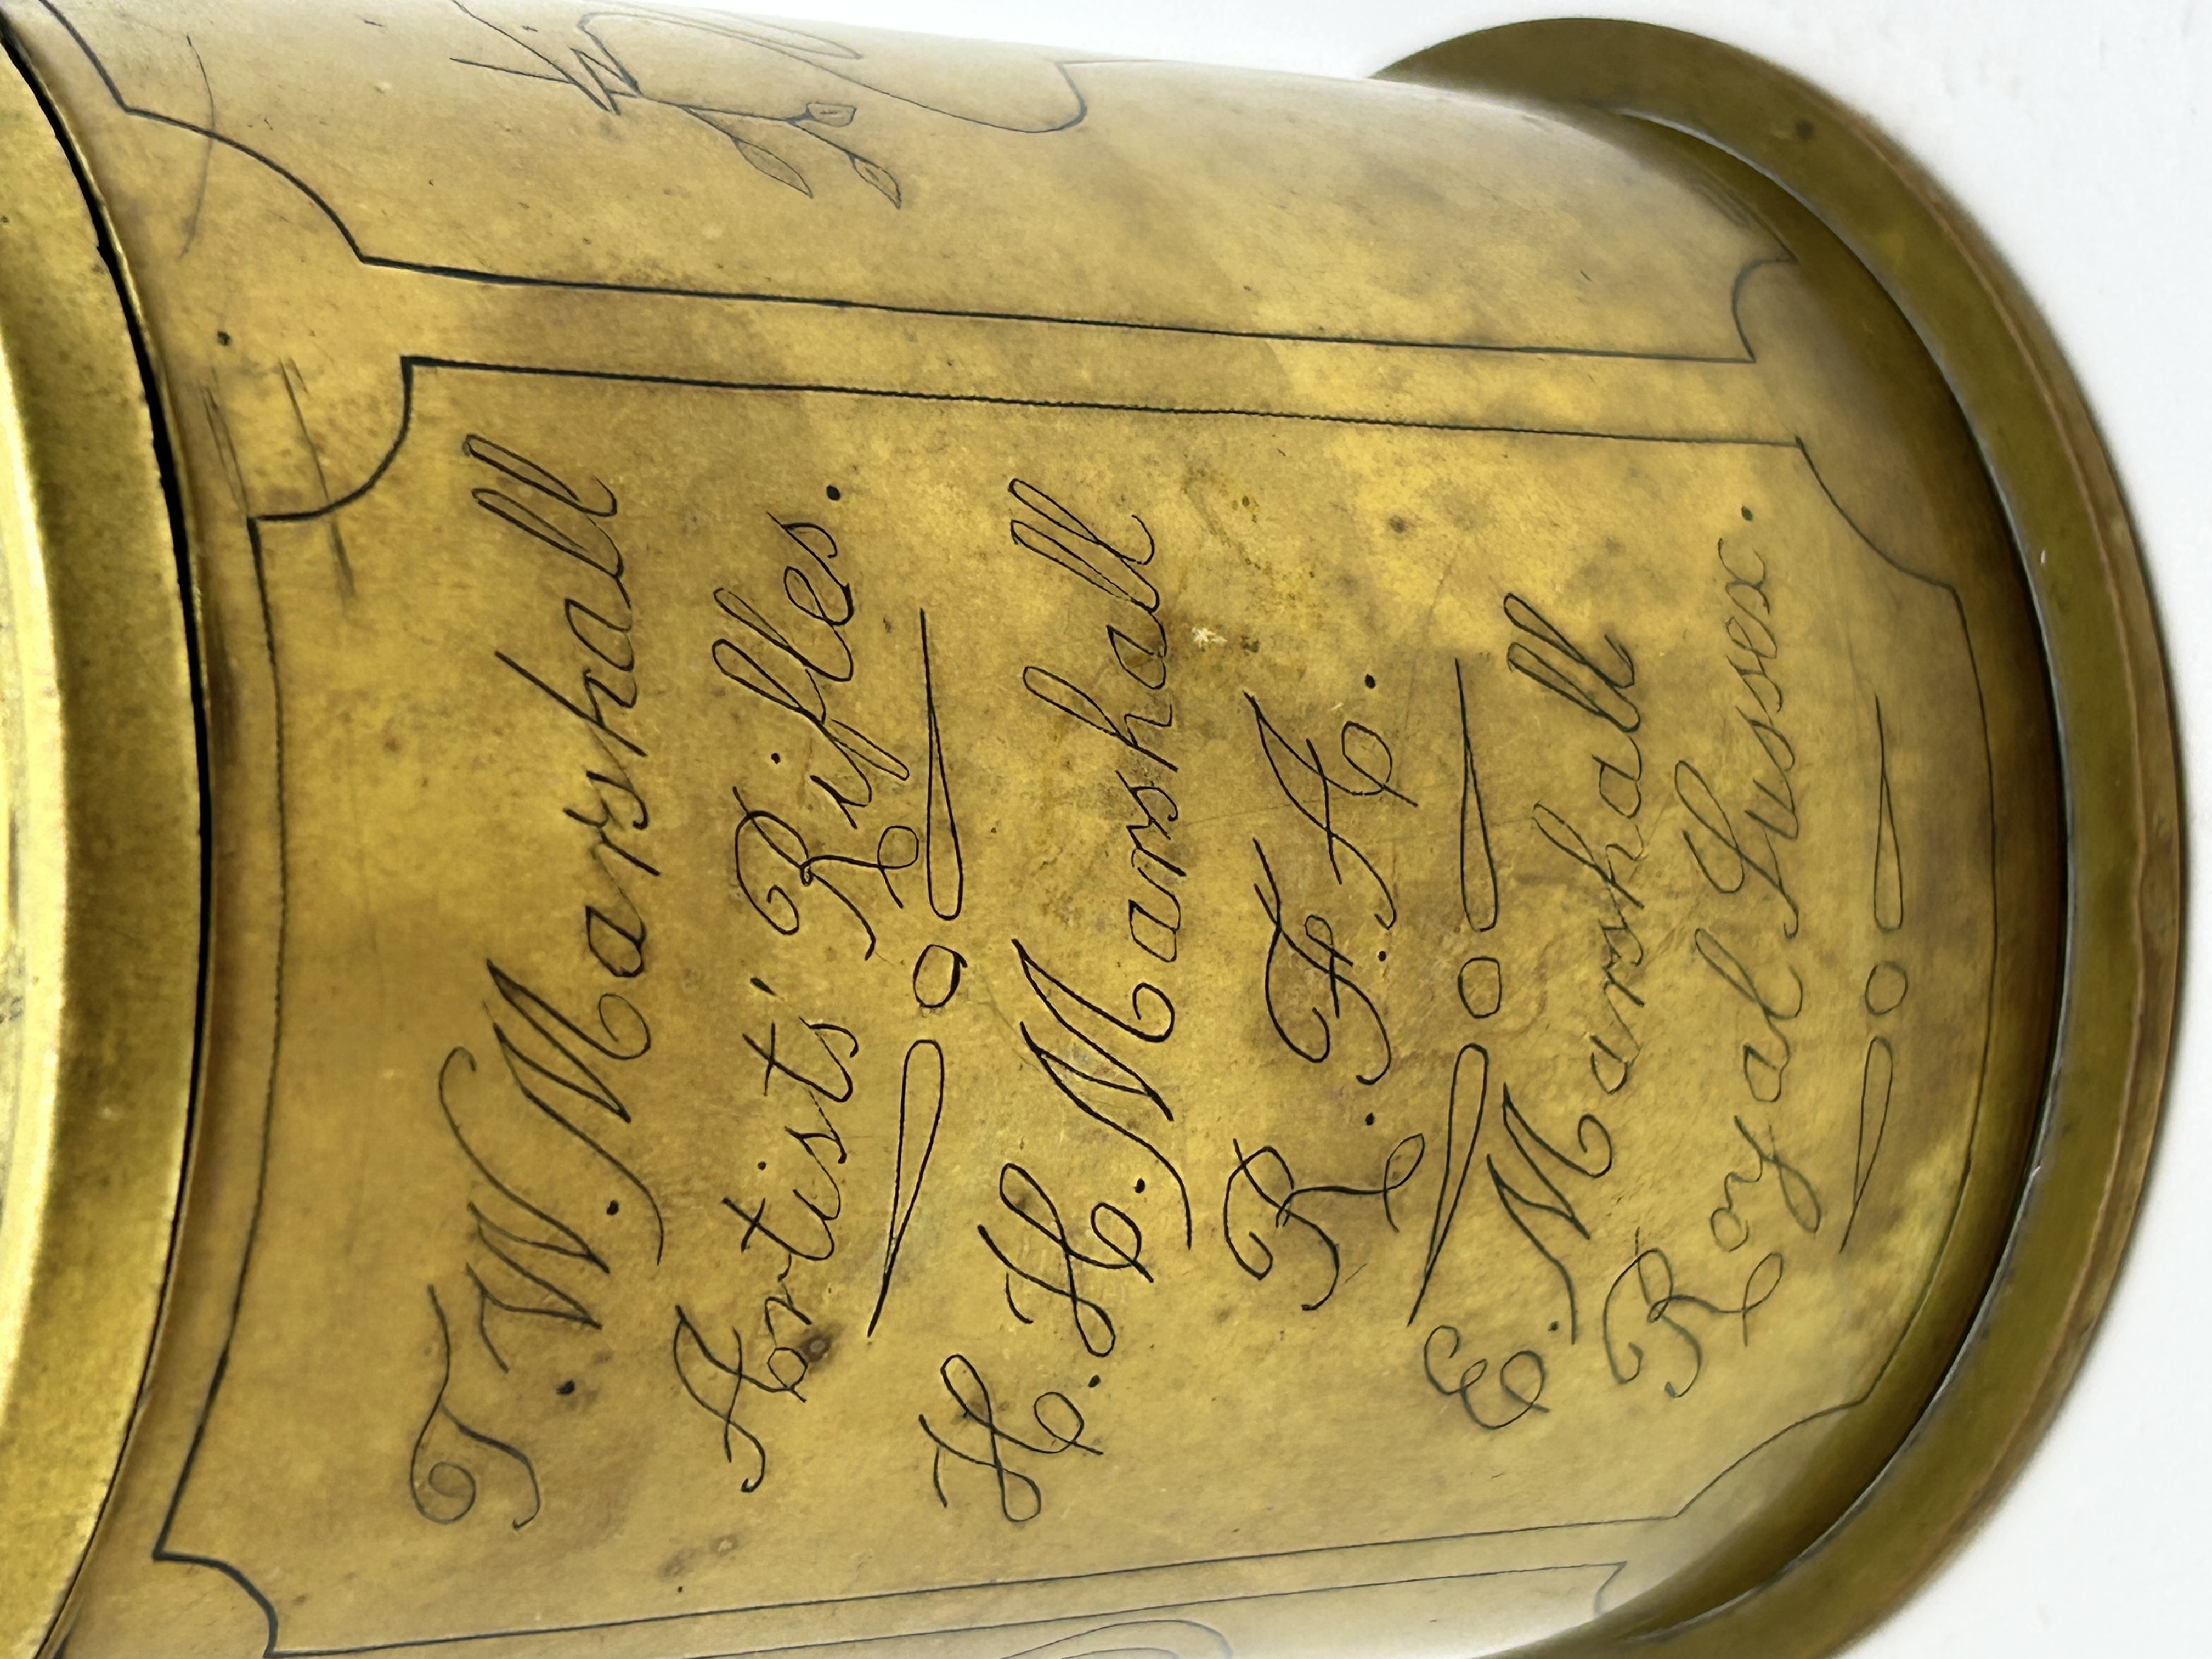 T. W. Marshall
Artists' Rifles.
H. H. Marshall
R. F. A.
E. Marshall
Royal Sussex.